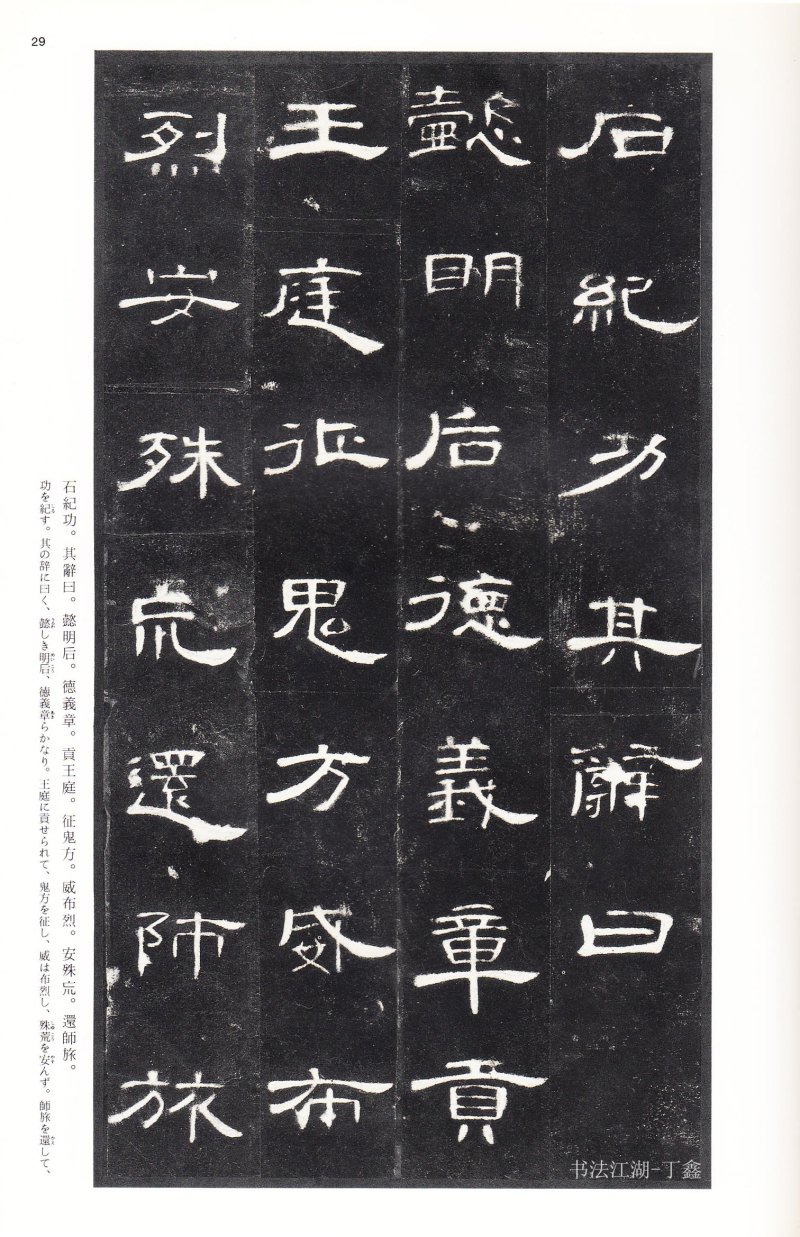 29
石紀功其辭曰
懿明后德義章貢
王庭征鬼方威布
烈安殊巟還師旅
石紀功。其辭曰。懿明后。德義章。貢王庭。征鬼方。威布烈。安殊巟。還師旅。
功を紀す。其の辞に曰く、懿しき明后、徳義章らかなり。王庭に貢せられて、鬼方を征し、威は布烈し、殊荒を安んず。師旅を還して、
书法江湖-丁鑫